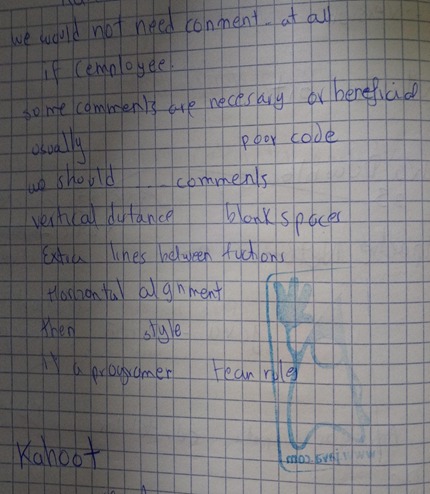 we would not need conment at all
if (employee.
some comments are necesary or beneficial
usually poor code
we should ... comments
vertical distance blank spaces
Extra lines between fuctions
Horizontal alignment
then style
if a programer team rules
Kahoot